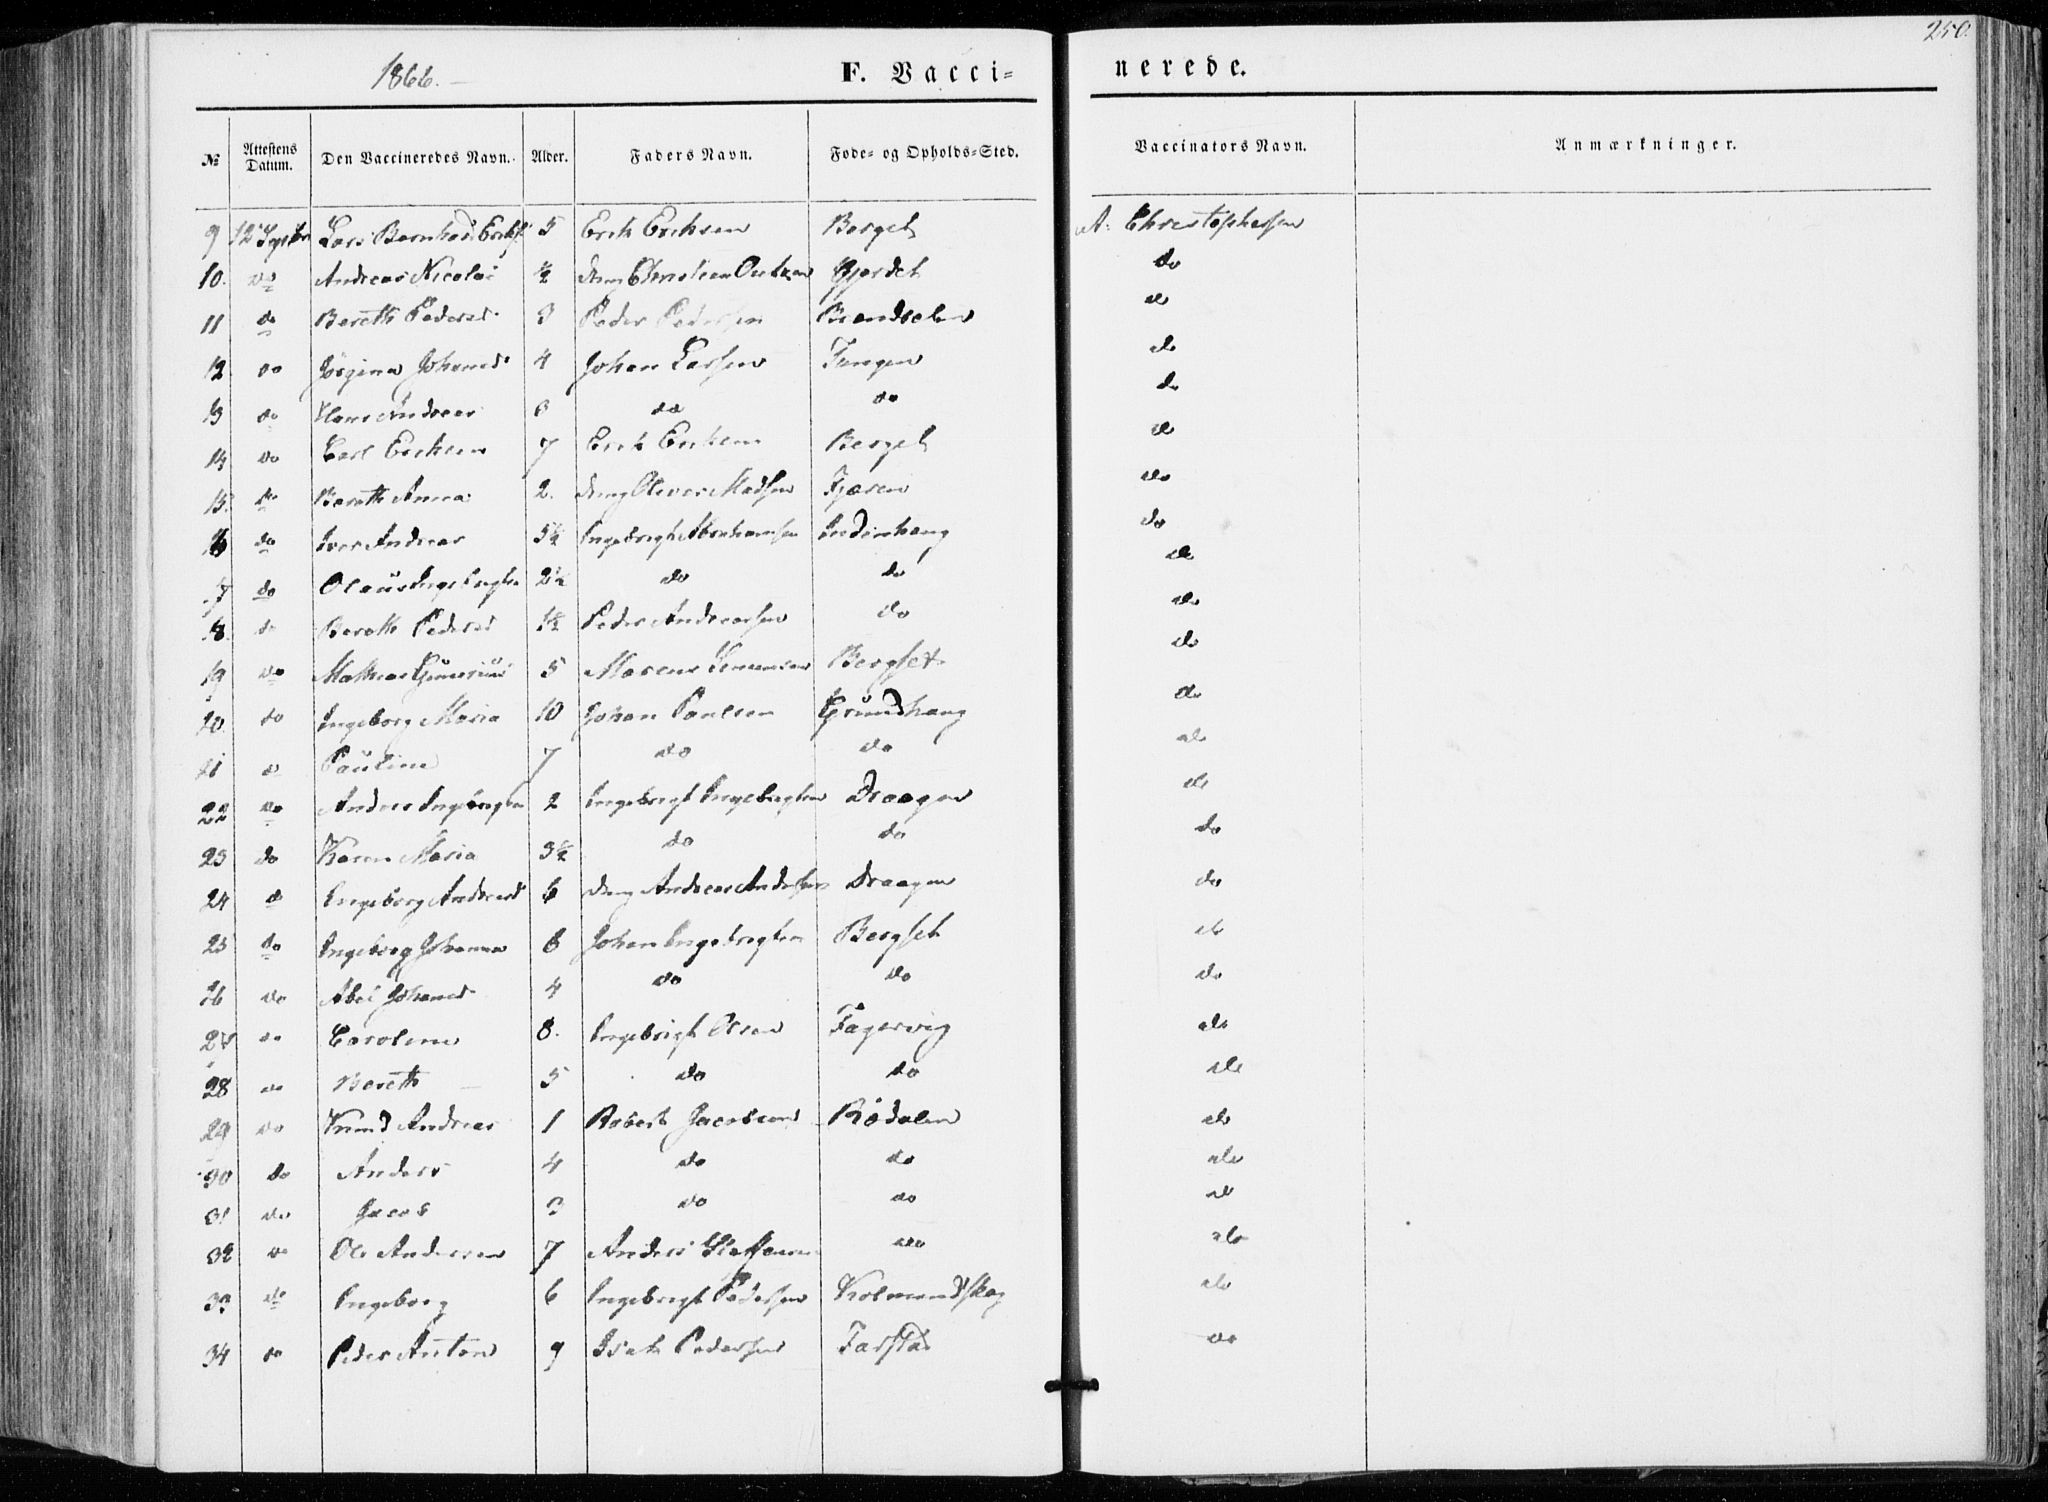 250.
1866.- F. Vacci= nerede.
№ Attestens Datum. Den Vaccineredes Navn. Alder. Faders Navn. Føde= og Opholds=Sted. Vaccinators Navn. Anmærkninger.
9 12 Lars Bernhard 5 Erik Eriksen Berget A. Christophersen
10. do Andreas Nicolai ½ Christian Gjerdet do
11 do Bereth Pedersd 3 Peder Pedersen do
12. do Jørgina Johansd 4 Johan Larsen Tangen do
13 do Hans Andreas do do do
14 do Carl Eriksen 7 Erik Eriksen Berget do
15. do Bereth Anna 2. Oliver Madsen Fjæren do
16 do Iver Andreas 5½ Ingebrigt Abrahamsen do
17 do Olaus Ingebrigtsn 2½ do do do
18. do Bereth Pedersd 1½ Peder Andreassen do do
19 do Mathias 5 Bergset do
20. do Ingeborg Maria 10 Johan Paulsen Grundhaug do
21 do Paulina 7 do do do
22 do Anders Ingebrigtsn 2 Ingebrigt Ingebrigtsen Draagen do
23 do Karen Maria 3½ do do do
24 do Ingeborg Andreasd 6 Andreas Andersen Draagen do
25 do Ingeborg Johanna 6 Johan Ingebrigtsen Bergset do
26 do Johansd 4 do do do
27 do Caroline 8. Ingebrigt Olsen Fagervig do
28 do Bereth 5 do do do
29 do Knud Andreas 1 Robert Jacobsen Rødalen do
30 do Anders 4 do do do
31 do Jacob 3 do do do
32 do Ole Andersen 7 Anders do do
33 do Ingeborg 6 Ingebrigt Pedersen Kolmandskog do
34 do Peder Anton 9 Pedersen Farstad do